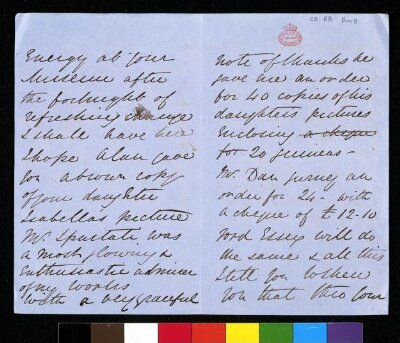 Energy at your
Museum after
the fortnight of
refreshing change
I shall have here
I hope Alan gave
you a brown copy
of your daughter
Isabella's picture
Mr. Spartali was
a most glowing &
Enthusiastic admirer
of my works
With a very graceful
note of thanks he
gave me an order
for 40 copies of his
daughters pictures
Enclosing a cheque
for 20 guineas -
Mr. Dan Gurney an
order for 24 - with
a cheque of £12-10
Lord Essex will do
the same & all this
I tell you when
you that thro your